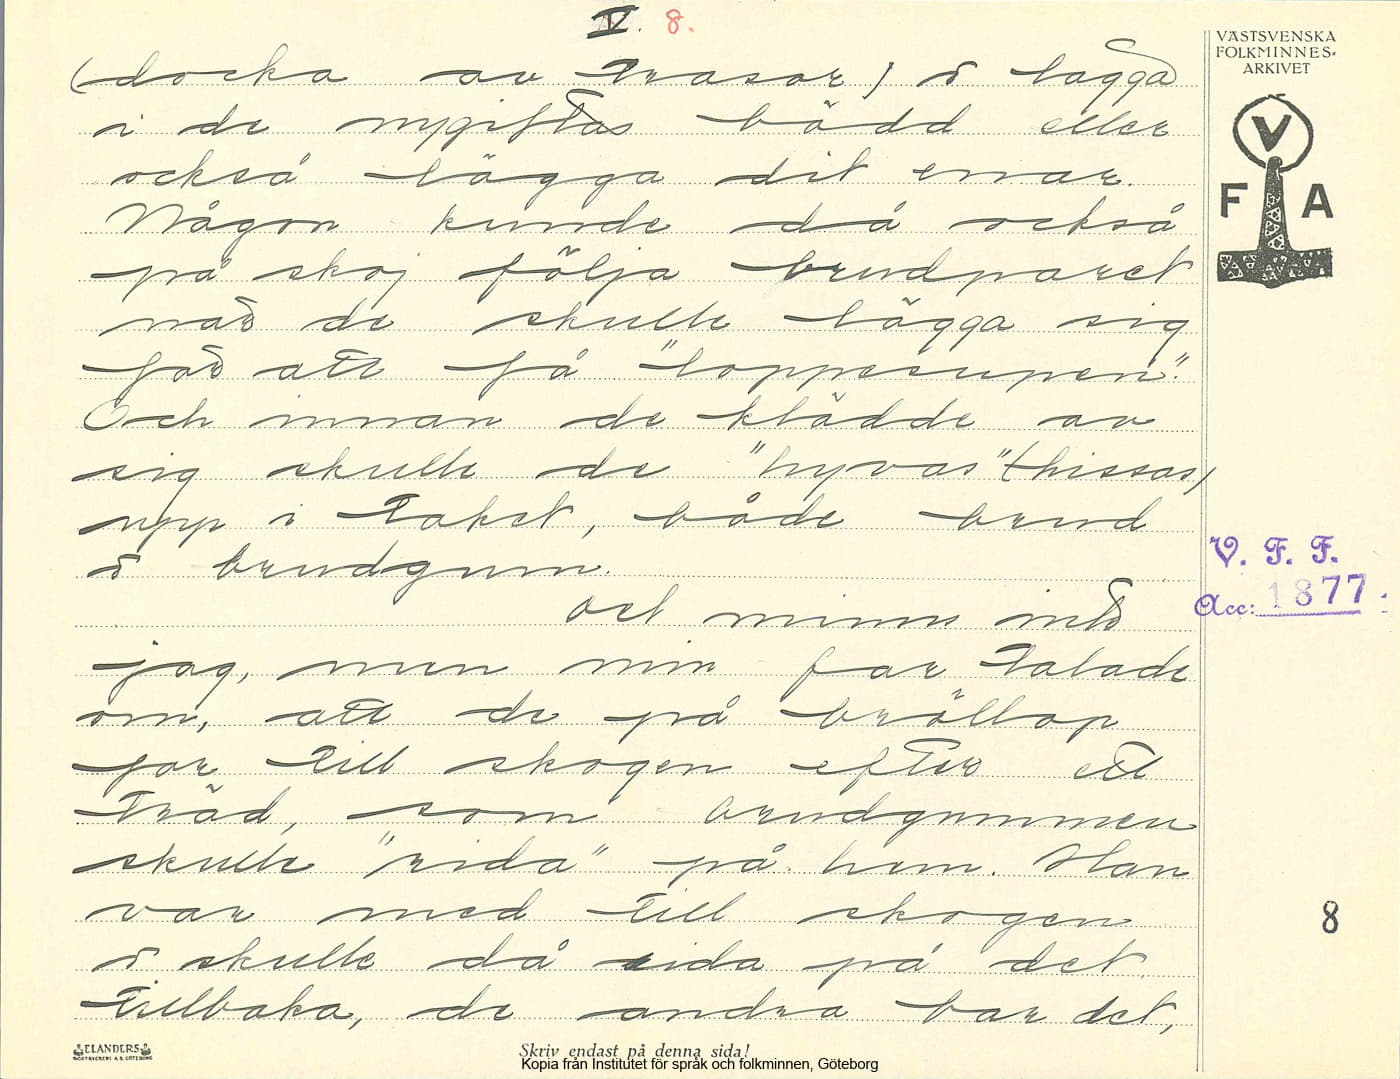 V. 8.
VÄSTSVENSKA
FOLKMINNES-
ARKIVET
V
F A
(docka av trasor) o lägga
i de nygiftas bädd eller
också lägga dit ennar.
Någon kunde då också
på skoj följa brudparet
när de skulle lägga sig
för att få "loppesupen".
Och innan de klädde av
sig skulle de "hyvas" (hissas)
upp i taket, både brud
o brudgum.
Det minns inte
jag, men min far talade
om, att de på bröllop
for till skogen efter ett
träd, som brudgummen
skulle "rida" på hem. Han
var med till skogen
o skulle då rida på det
tillbaka, de andra bar det,
V. F. F.
Acc: 1877
8
ELANDERS
BOKTRYCKERI A.B. GÖTEBORG
Skriv endast på denna sida!
Kopia från Institutet för språk och folkminnen, Göteborg